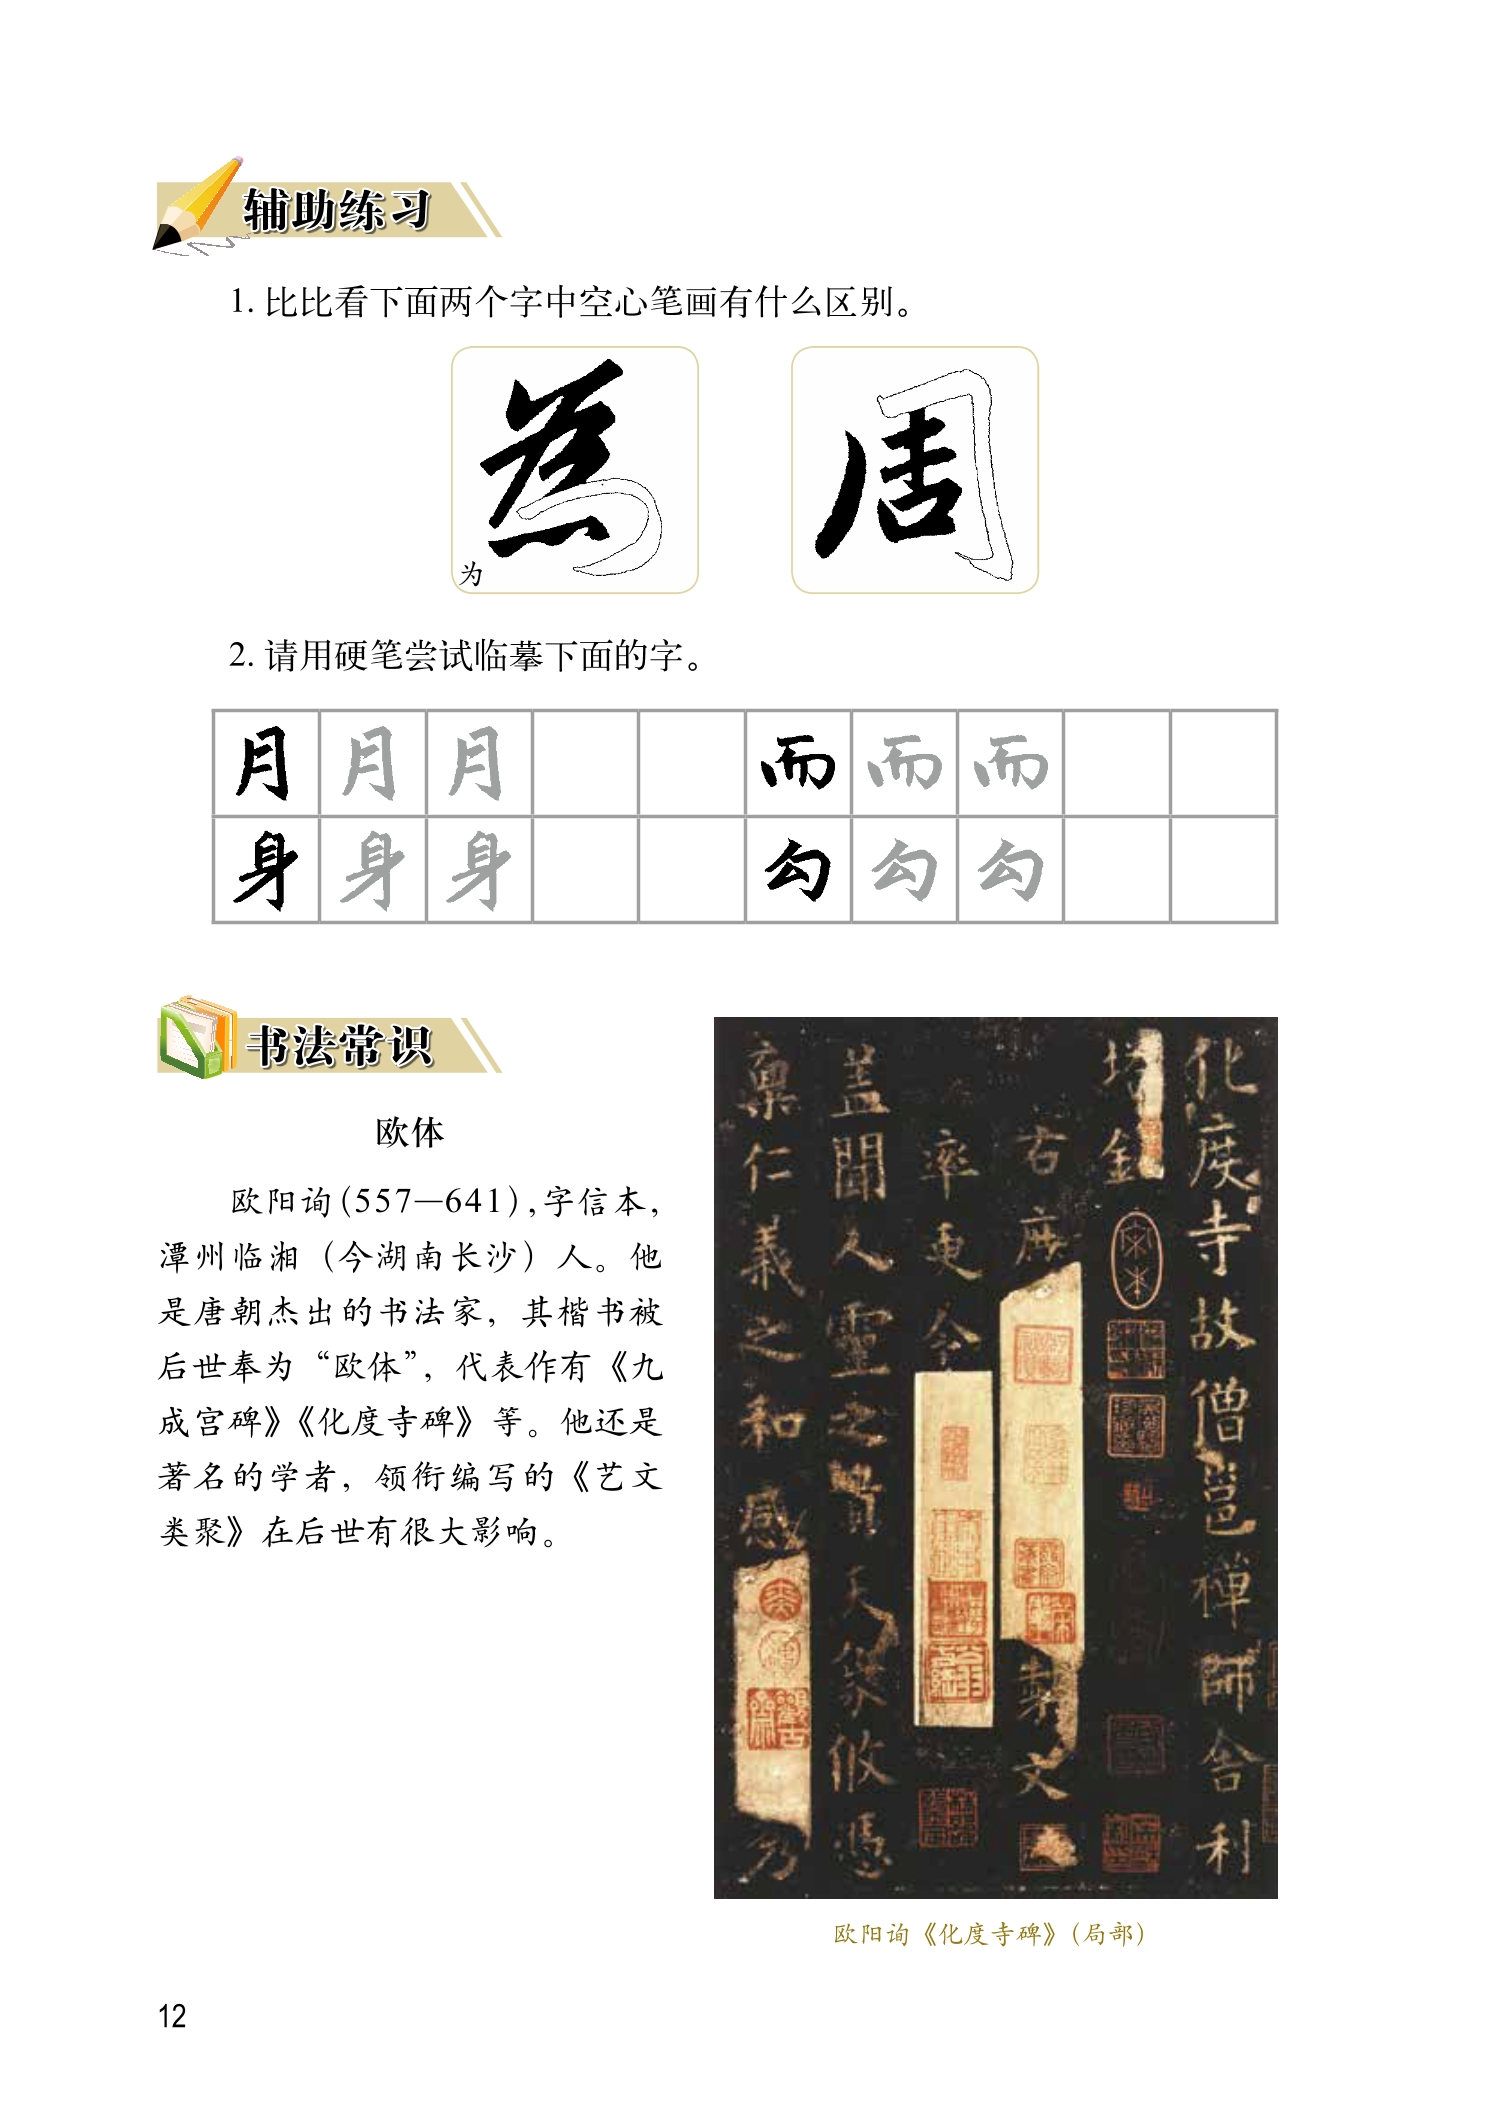 辅助练习
1. 比比看下面两个字中空心笔画有什么区别。
為 周
为
2. 请用硬笔尝试临摹下面的字。
月 月 月 而 而 而
身 身 身 勾 勾 勾
书法常识
欧体
欧阳询（557—641），字信本，
潭州临湘（今湖南长沙）人。他
是唐朝杰出的书法家，其楷书被
后世奉为“欧体”，代表作有《九
成宫碑》《化度寺碑》等。他还是
著名的学者，领衔编写的《艺文
类聚》在后世有很大影响。
化度寺故僧邕禅師舍利
塔銘
右庶製文
率更令
盖聞人靈之貴天象攸憑
稟仁義之和感乃
欧阳询《化度寺碑》（局部）
12